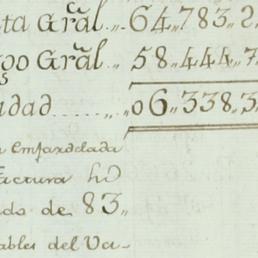 ta Grãl.,, 64,,783,,2
go Grãl.. 58,,444,,7
idad.......,, 06,,338,3
enfardelada
factura hD
do de 83,,
ables del Va-